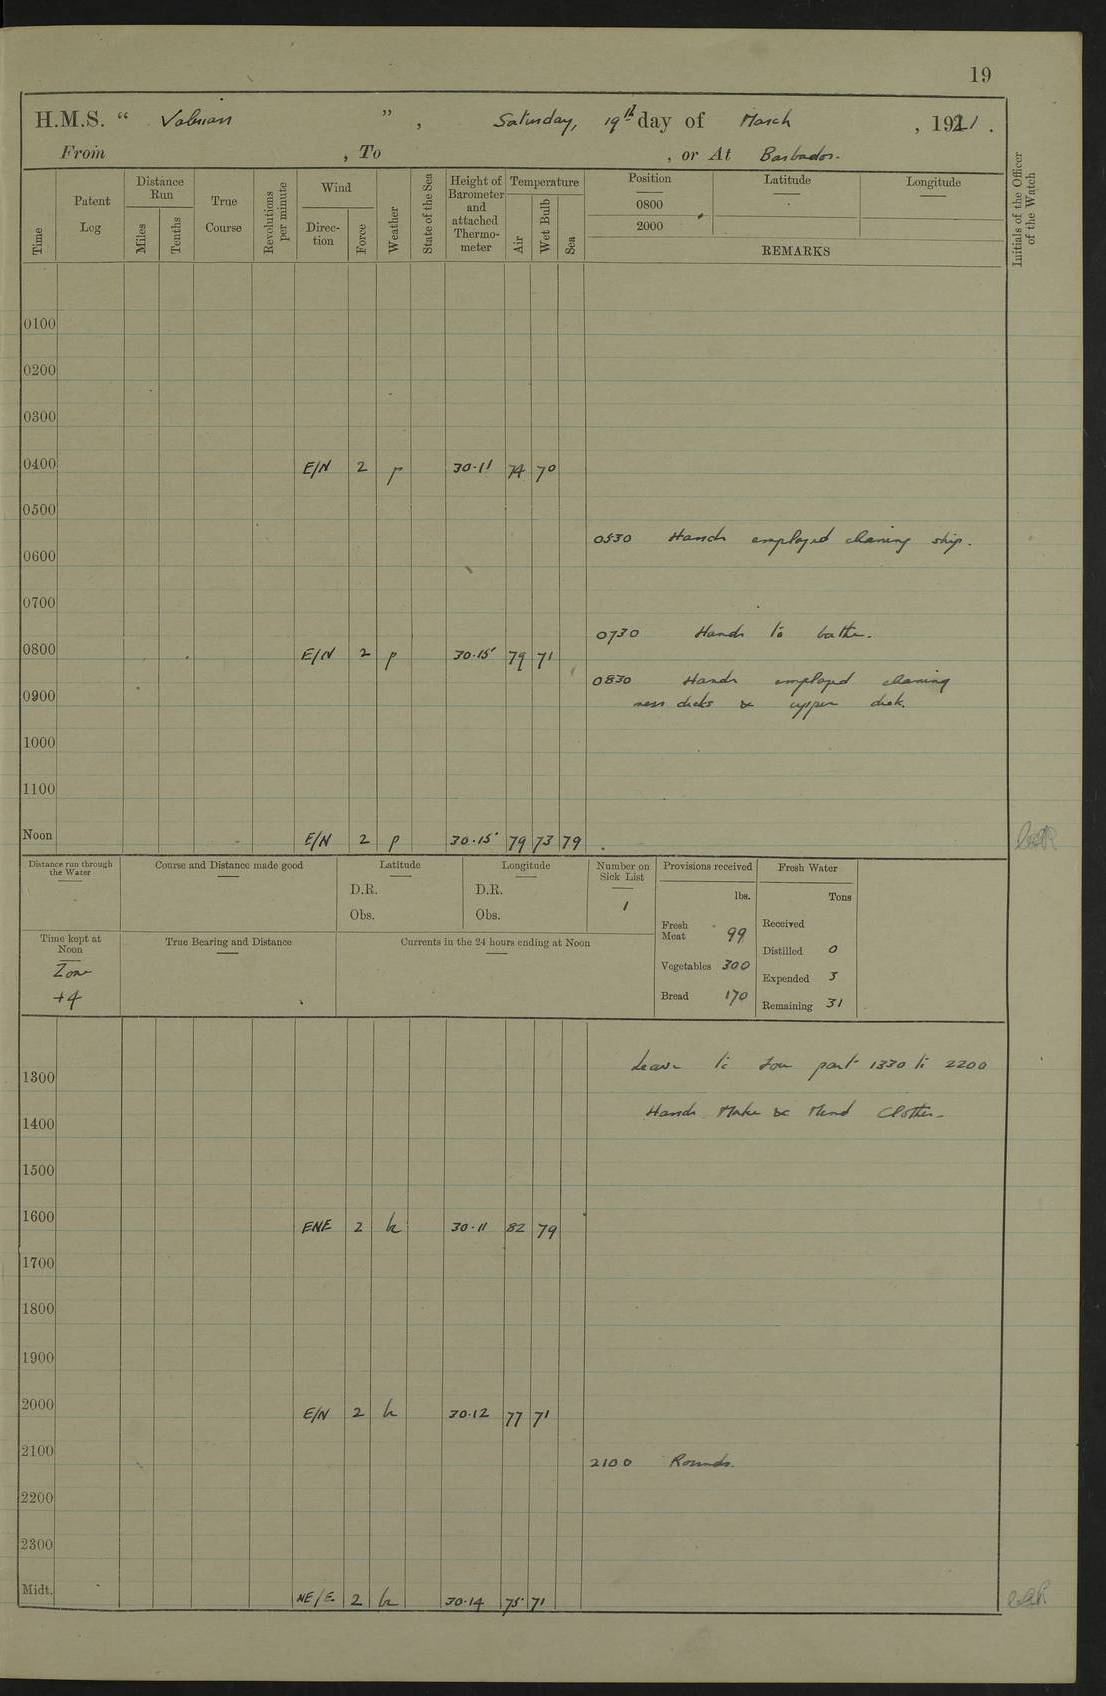 19
H.M.S. “ Valerian ” , Saturday, 19th day of March , 1921 .
From , To , or At Barbados.
Time
Patent Log
Distance Run
Miles
Tenths
True Course
Revolutions per minute
Wind
Direction
Force
Weather
State of the Sea
Height of Barometer and attached Thermometer
Temperature
Air
Wet Bulb
Sea
Position
0800
2000
Latitude
Longitude
REMARKS
Initials of the Officer of the Watch
0100
0200
0300
0400 E/N 2 p 30.11 74 70
0500
0530 Hands employed cleaning ship.
0600
0700
0730 Hands to bathe.
0800 E/N 2 p 30.15 79 71
0830 Hands employed cleaning
0900 mess decks & upper deck.
1000
1100
Noon E/N 2 p 30.15 79 73 79
Distance run through the Water
Course and Distance made good
Latitude
D.R.
Obs.
Longitude
D.R.
Obs.
Number on Sick List
1
Provisions received
lbs.
Fresh Meat 99
Vegetables 300
Bread 170
Fresh Water
Tons
Received
Distilled 0
Expended 3
Remaining 31
Time kept at Noon
Zone
+4
True Bearing and Distance
Currents in the 24 hours ending at Noon
Leave to four part 1330 to 2200
1300
Hands Make & Mend Clothes.
1400
1500
1600 ENE 2 b 30.11 82 79
1700
1800
1900
2000 E/N 2 b 30.12 77 71
2100
2100 Rounds.
2200
2300
Midt. NE/E. 2 b 30.14 75 71